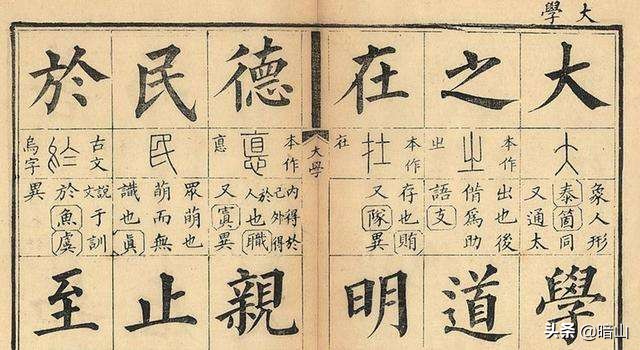 大學
大
象人形
泰箇同
又通太
學
之
本作
㞢
出也後
偕為助
語支
道
在
本作
在
存也賄
又隊異
明
大學
德
本作
悳
內得於
己外得
於人也職
又實異
親
民
眾萌也
萌而無
識也眞
止
於
古文
烏字
說文于訓
於魚虞
異
至
头条 @暗山